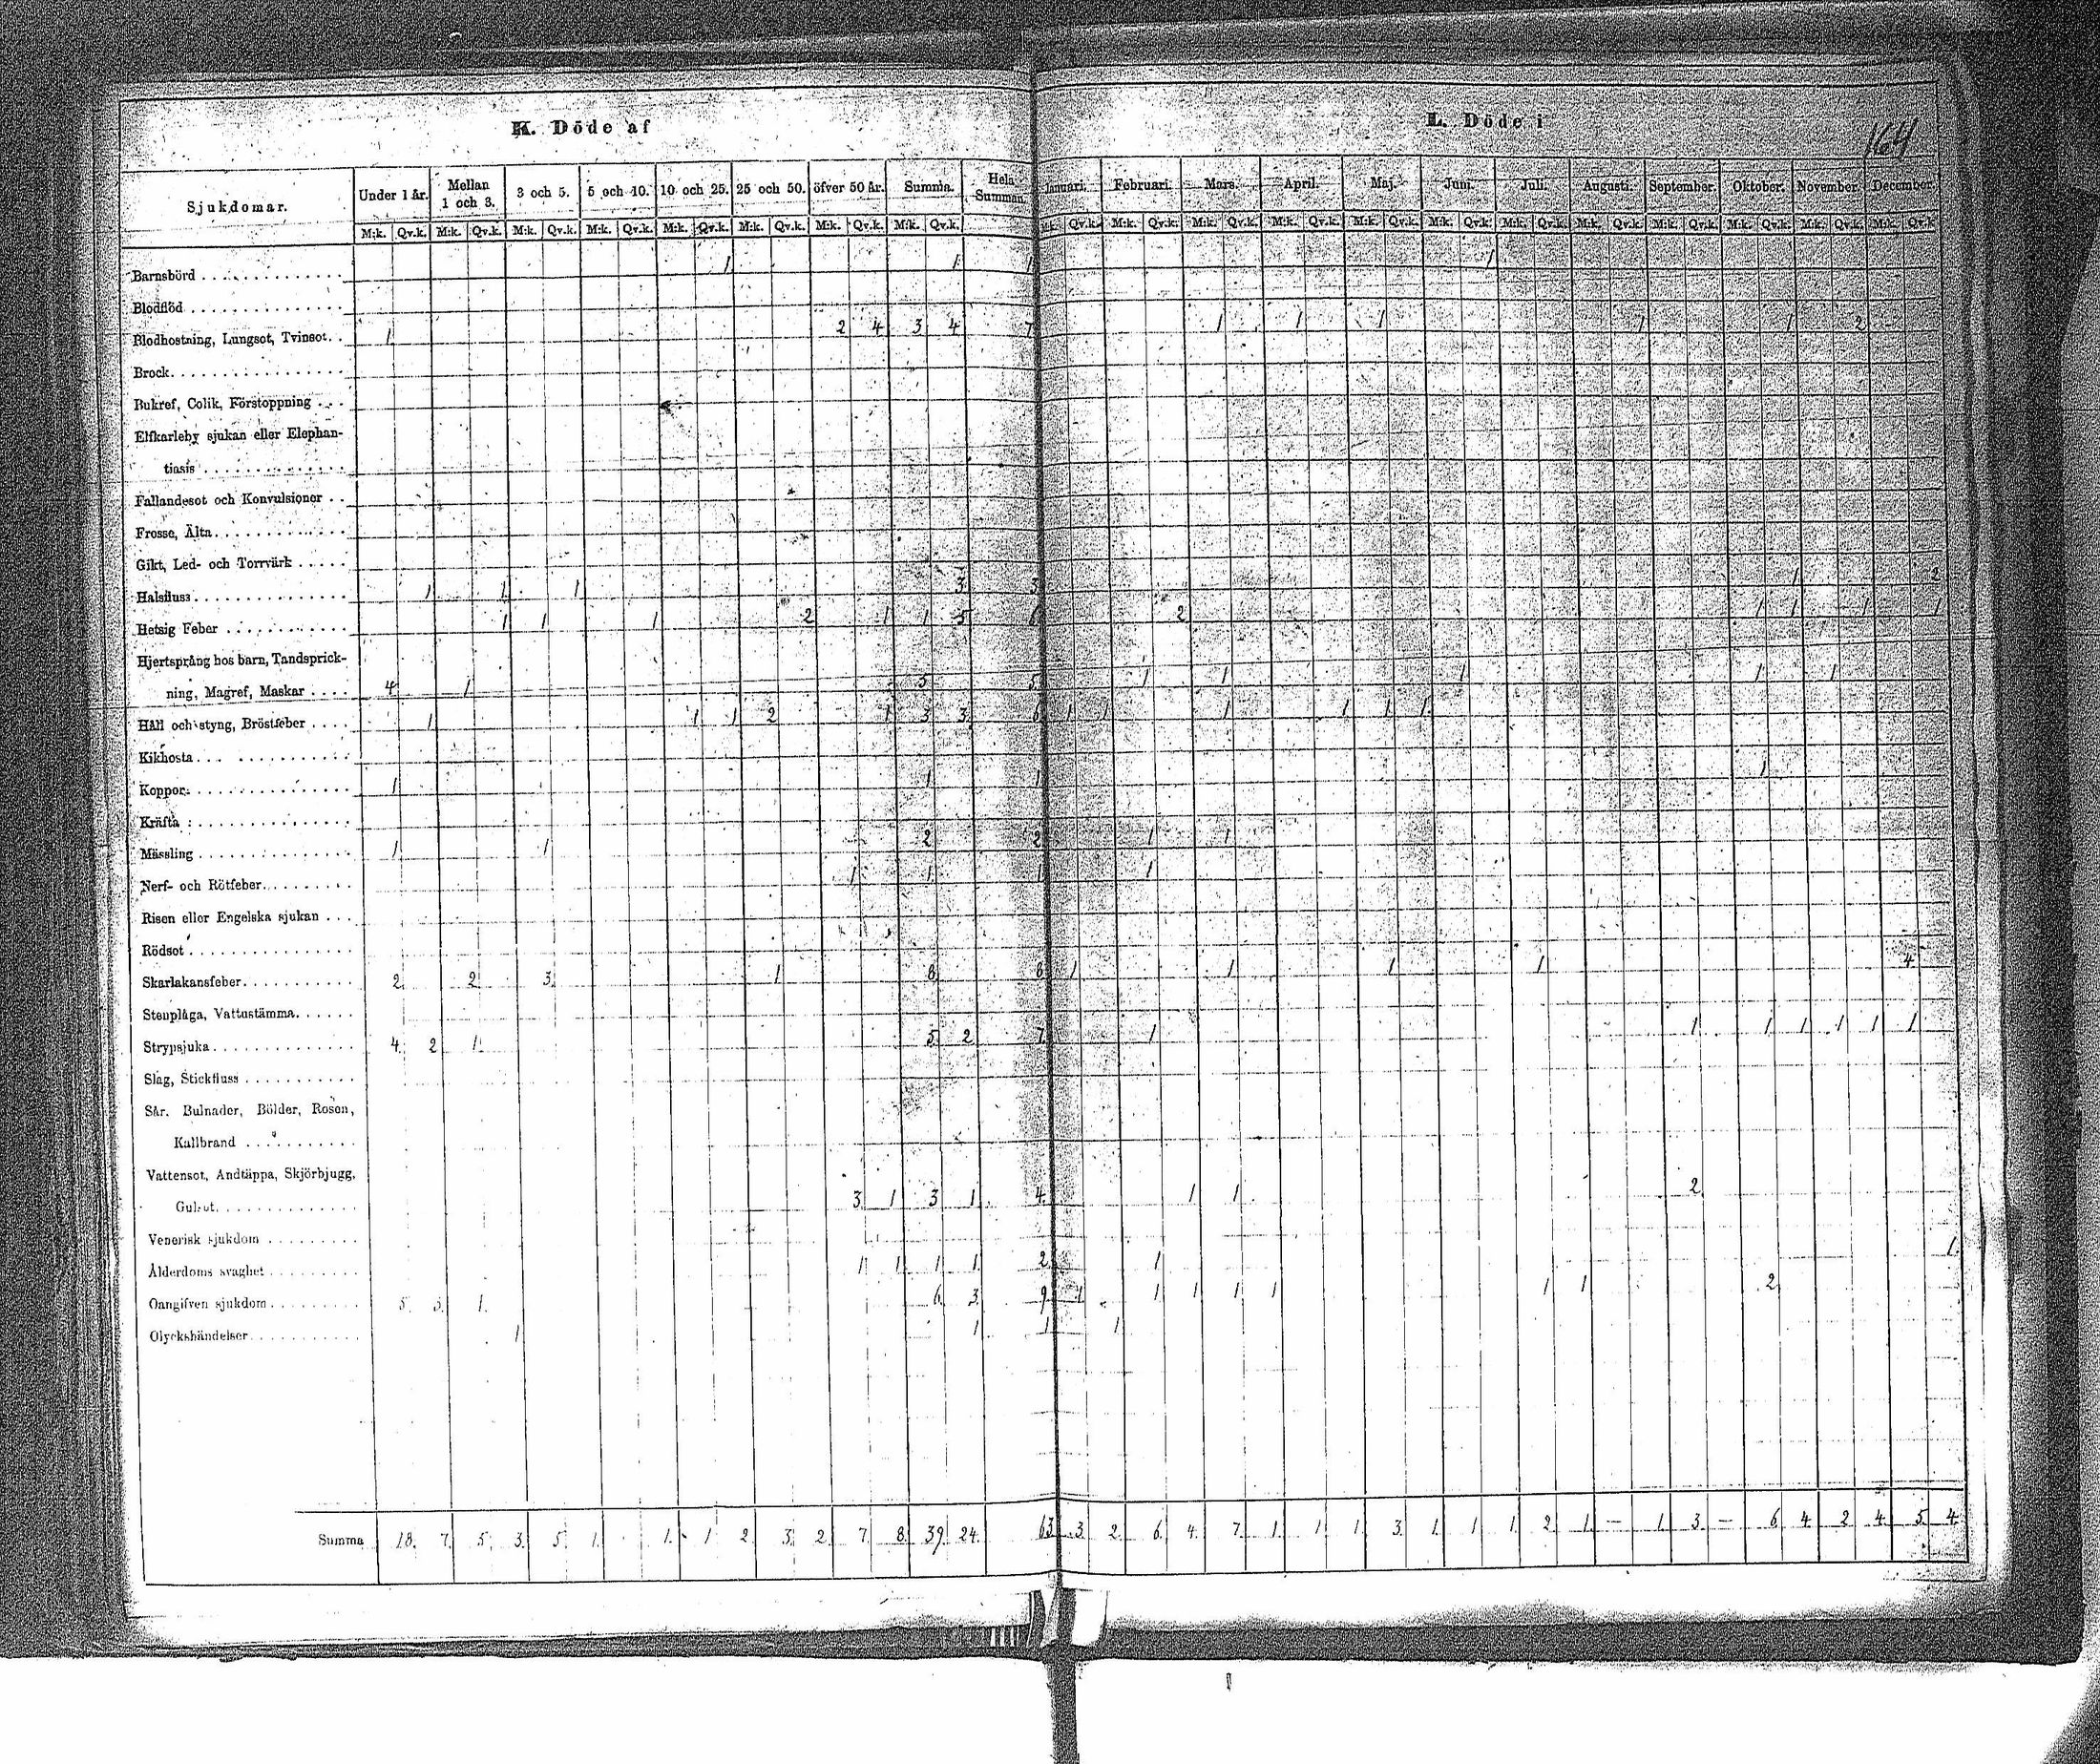 K. Döde af
L. Döde i
164
Sjukdomar. Under 1 år. Mellan 1 och 3. 3 och 5. 5 och 10. 10 och 25. 25 och 50. öfver 50 år. Summa. Hela Summan. Januari. Februari. Mars. April. Maj. Juni. Juli. Augusti. September. Oktober. November. December.
M:k. Qv.k. M:k. Qv.k. M:k. Qv.k. M:k. Qv.k. M:k. Qv.k. M:k. Qv.k. M:k. Qv.k. M:k. Qv.k. M:k. Qv.k. M:k. Qv.k. M:k. Qv.k. M:k. Qv.k. M:k. Qv.k. M:k. Qv.k. M:k. Qv.k. M:k. Qv.k. M:k. Qv.k. M:k. Qv.k. M:k. Qv.k. M:k. Qv.k.
Barnsbörd 1 1 1 1
Blodflöd
Blodhostning, Lungsot, Tvinsot. 1 2 4 3 4 7 1 1 1 1 1 2
Brock
Bukref, Colik, Förstoppning
Elfkarleby sjukan eller Elephan-
tiasis
Fallandesot och Konvulsioner
Frossa, Älta
Gikt, Led- och Torrvärk
Halsfluss 1 1 1 3 3 1 2
Hetsig Feber 1 1 1 2 1 1 5 6 2 1 1 1 1
Hjertsprång hos barn, Tandsprick-
ning, Magref, Maskar 4 1 5 5 1 1 1 1 1
Håll och styng, Bröstfeber 1 1 1 2 1 3 3 6 1 1 1 1 1 1
Kikhosta
Koppor 1 1 1 1
Kräfta
Mässling 1 1 2 2 1 1
Nerf- och Rötfeber 1 1 1 1
Risen eller Engelska sjukan
Rödsot
Skarlakansfeber 2 2 3 1 8 8 1 1 1 1 4
Stenplåga, Vattustämma
Strypsjuka 4 2 1 5 2 7 1 1 1 1 1 1 1
Slag, Stickfluss
Sår. Bulnader, Bölder, Rosen,
Kallbrand
Vattensot, Andtäppa, Skjörbjugg,
Gulsot 3 1 3 1 4 1 1 2
Venerisk sjukdom
Ålderdoms svaghet 1 1 1 1 2 1 1
Oangifven sjukdom 5 3 1 6 3 9 1 1 1 1 1 1 1 2
Olyckshändelser 1 1 1 1
Summa 18. 7. 5. 3. 5. 1. 1. 1 2. 3. 2. 7. 8. 39. 24. 63. 3. 2. 6. 4. 7. 1. 1. 1. 3. 1. 1. 1. 2. 1. — 1. 3. — 6. 4. 2 4. 5. 4.